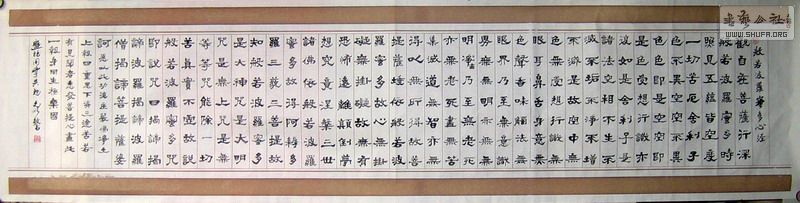 般若波羅蜜多心經
觀自在菩薩行深
般若波羅蜜多時
照見五蘊皆空度
一切苦厄舍利子
色不異空空不異
色色即是空空即
是色受想行識亦
復如是舍利子是
諸法空相不生不
滅不垢不淨不增
不減是故空中無
色無受想行識無
眼耳鼻舌身意無
色聲香味觸法無
眼界乃至無意識
界無無明亦無無
明盡乃至無老死
亦無老死盡無苦
集滅道無智亦無
得以無所得故菩
提薩埵依般若波
羅蜜多故心無掛
礙無掛礙故無有
恐怖遠離顛倒夢
想究竟涅槃三世
諸佛依般若波羅
蜜多故得阿耨多
羅三藐三菩提故
知般若波羅蜜多
是大神咒是大明
咒是無上咒是無
等等咒能除一切
苦真實不虛故說
般若波羅蜜多咒
即說咒曰揭諦揭
諦波羅揭諦波羅
僧揭諦菩提薩婆
訶 願以此功德莊嚴佛淨土
上報四重恩下濟三途苦若
有見聞者悉發菩提心盡此
一報身同生極樂國
WWW.SHUFA.ORG